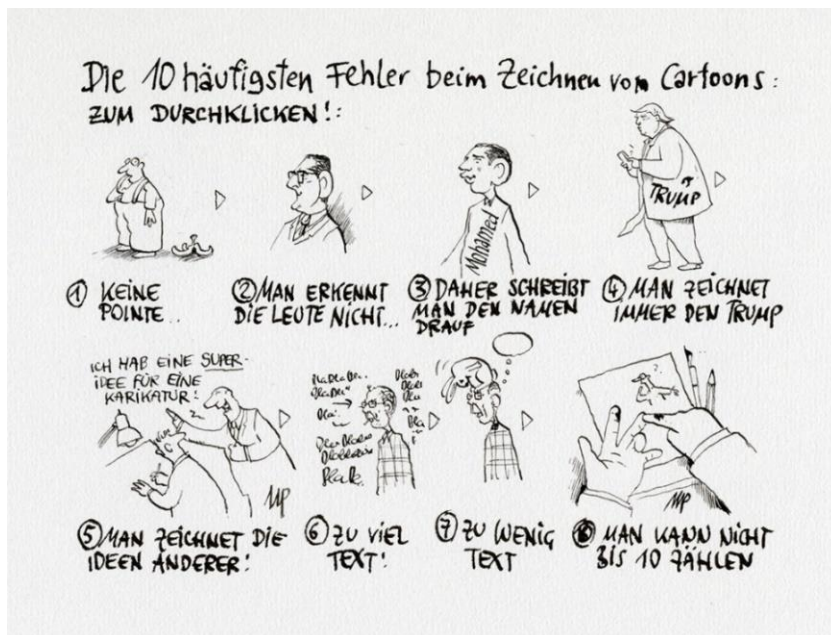 Die 10 häufigsten Fehler beim Zeichnen von Cartoons:
ZUM DURCHKLICKEN!:
TRUMP
Mohamed
① KEINE
POINTE..
② MAN ERKENNT
DIE LEUTE NICHT...
③ DAHER SCHREIBT
MAN DEN NAMEN
DRAUF
④ MAN ZEICHNET
IMMER DEN TRUMP
ICH HAB EINE SUPER-
IDEE FÜR EINE
KARIKATUR!
MP
MP
⑤ MAN ZEICHNET DIE
IDEEN ANDERER!
⑥ ZU VIEL
TEXT!
⑦ ZU WENIG
TEXT
⑧ MAN KANN NICHT
BIS 10 ZÄHLEN